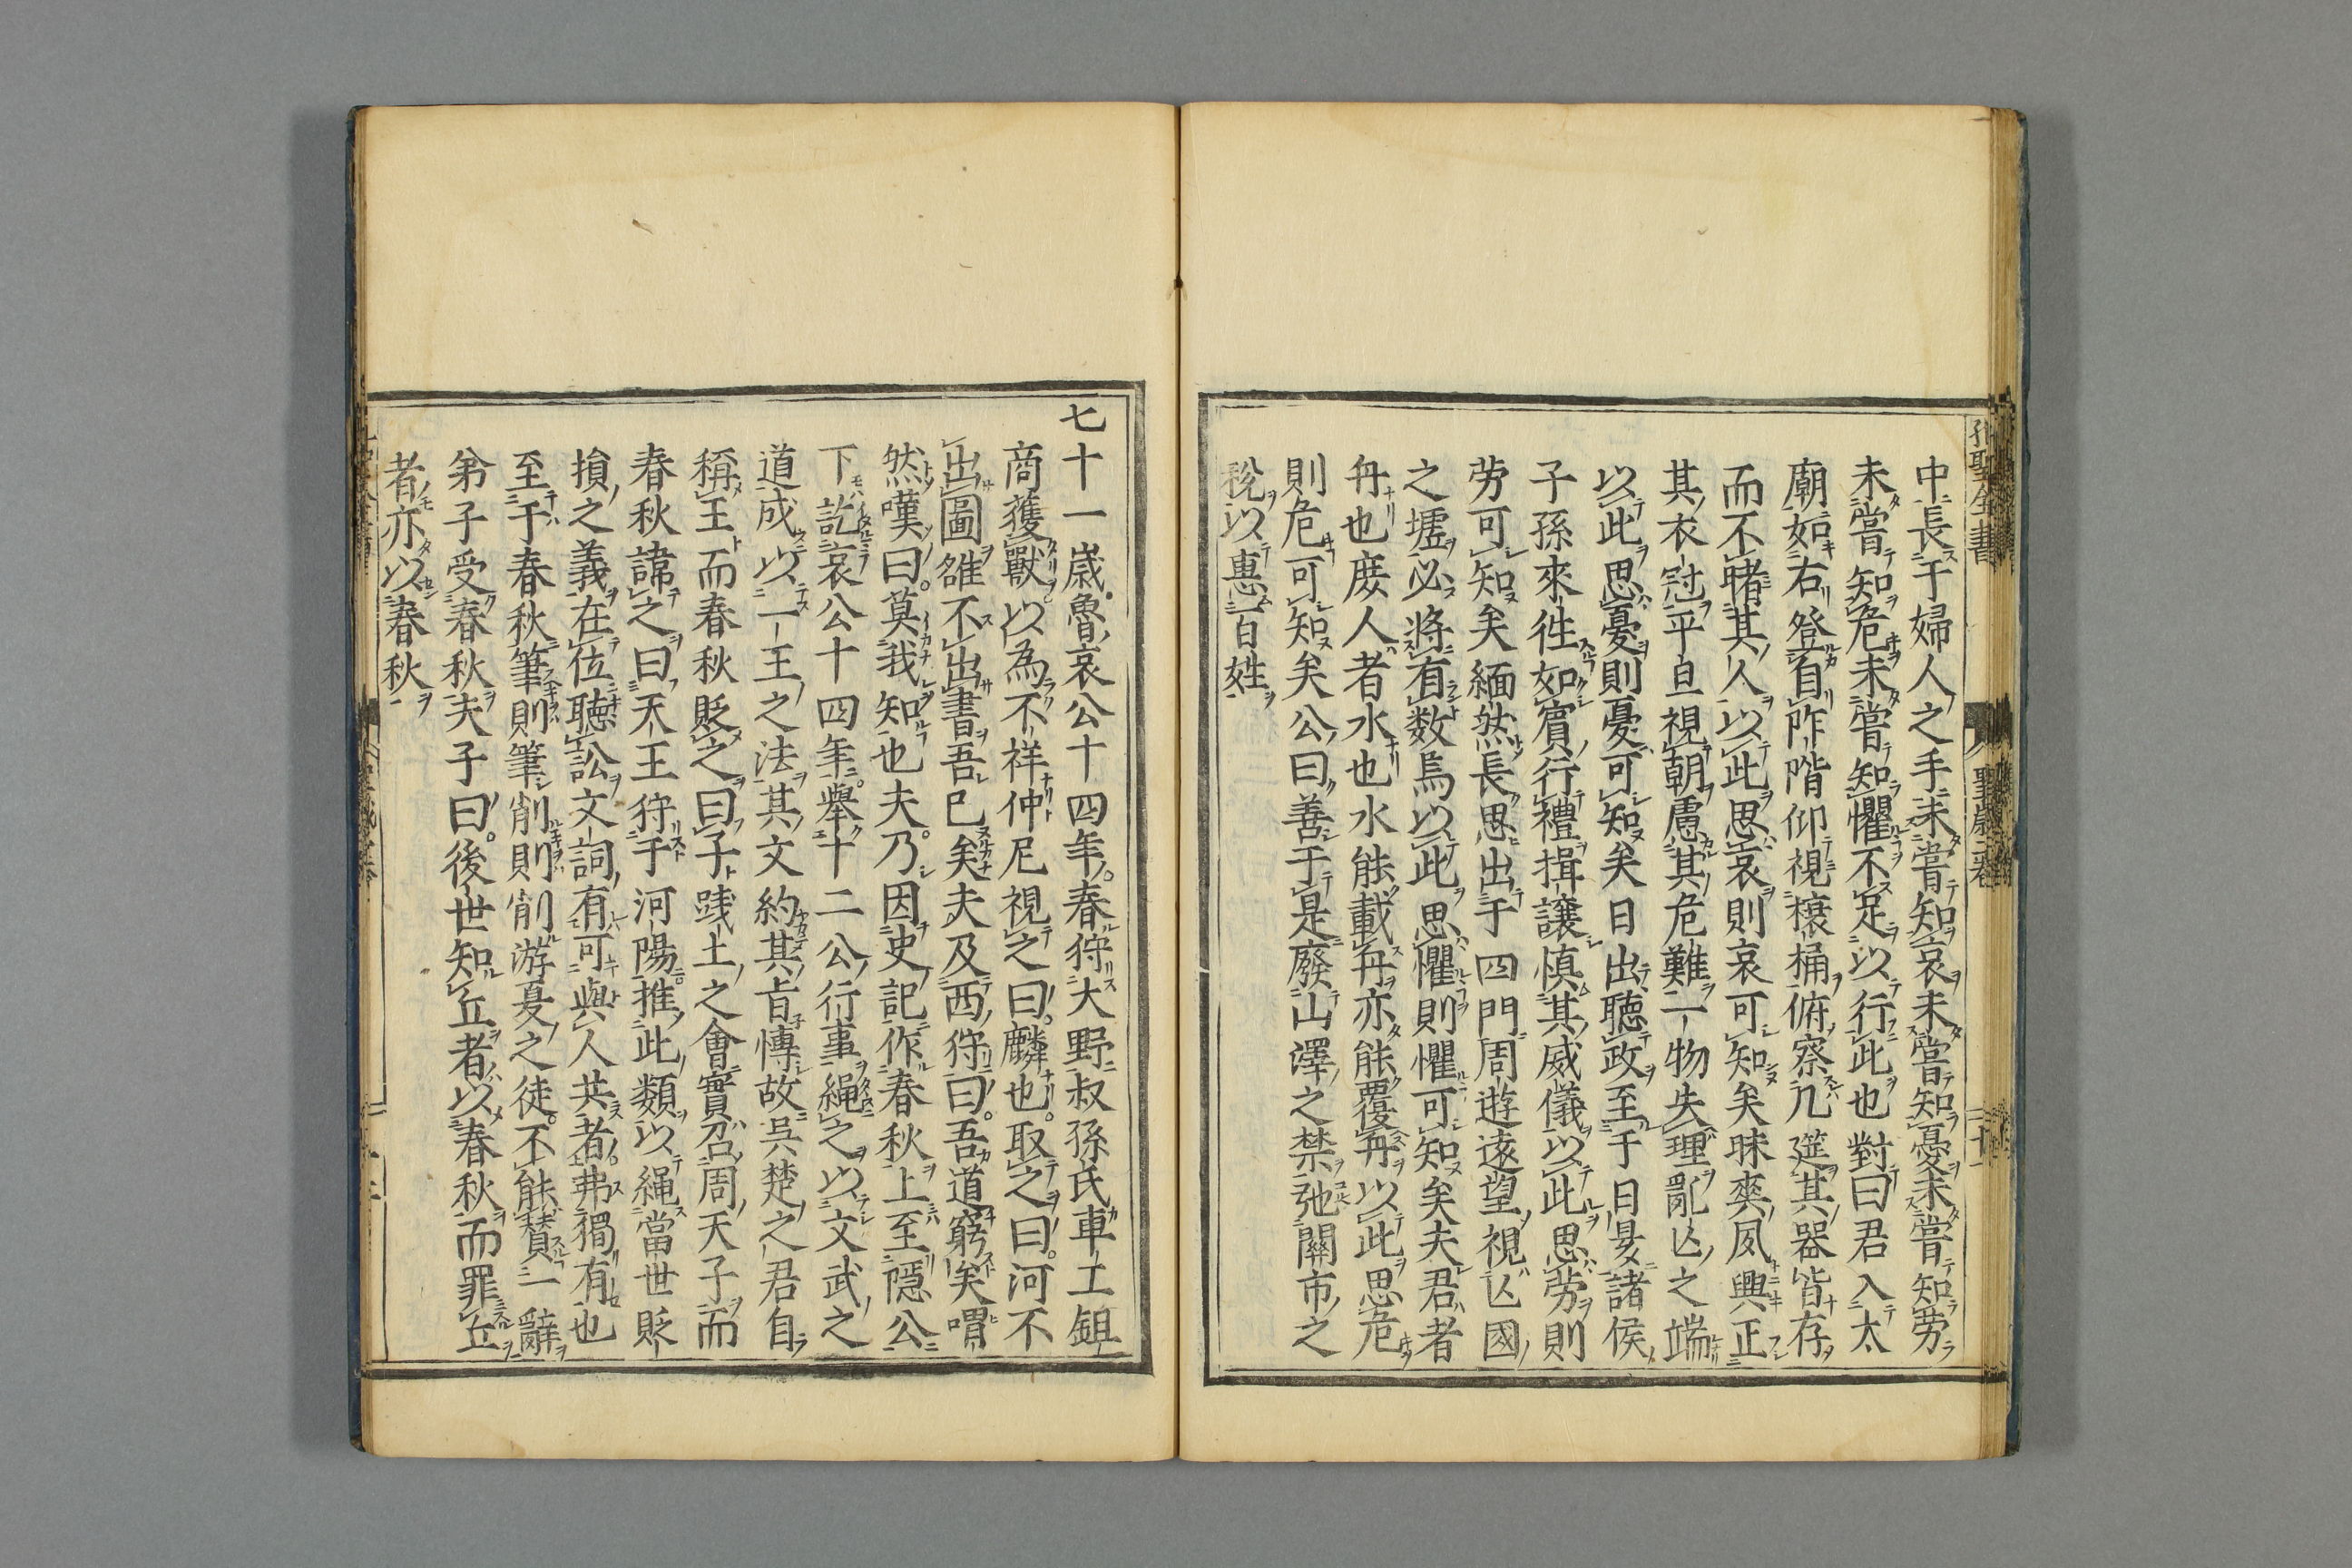 中長于婦人之手未嘗知哀未嘗知憂未嘗知労
未嘗知危未嘗知懼不足以行此也對曰君入太
廟如右登自阼階仰視榱桷俯察几筵其器皆存
而不睹其人以此思哀則哀可知矣昧爽夙興正
其衣冠平旦視朝慮其危難一物失理亂亡之端
以此思憂則憂可知矣日出聽政至于日晏諸侯
子孫來往如賓行禮揖讓慎其威儀以此思労則
労可知矣緬然長思出于四門周遊遠望視亡國
之墟必將有数焉以此思懼則懼可知矣夫君者
舟也庶人者水也水能載舟亦能覆舟以此思危
則危可知矣公曰善于是廢山澤之禁弛關市之
稅以惠百姓
七十一歳魯哀公十四年春狩大野叔孫氏車士鉏
商獲獸以為不祥仲尼視之曰麟也取之曰河不
出圖雒不出書吾已矣夫及西狩曰吾道窮矣喟
然嘆曰莫我知也夫乃因史記作春秋上至隱公
下訖哀公十四年舉十二公行事繩之以文武之
道成以一王之法其文約其旨博故吳楚之君自
稱王而春秋貶之曰子踐土之會實召周天子而
春秋諱之曰天王狩于河陽推此類以繩當世貶
損之義在位聽訟文詞有可與人共者弗獨有也
至于春秋筆則筆削則削游夏之徒不能賛一辭
弟子受春秋夫子曰後世知丘者以春秋而罪丘
者亦以春秋